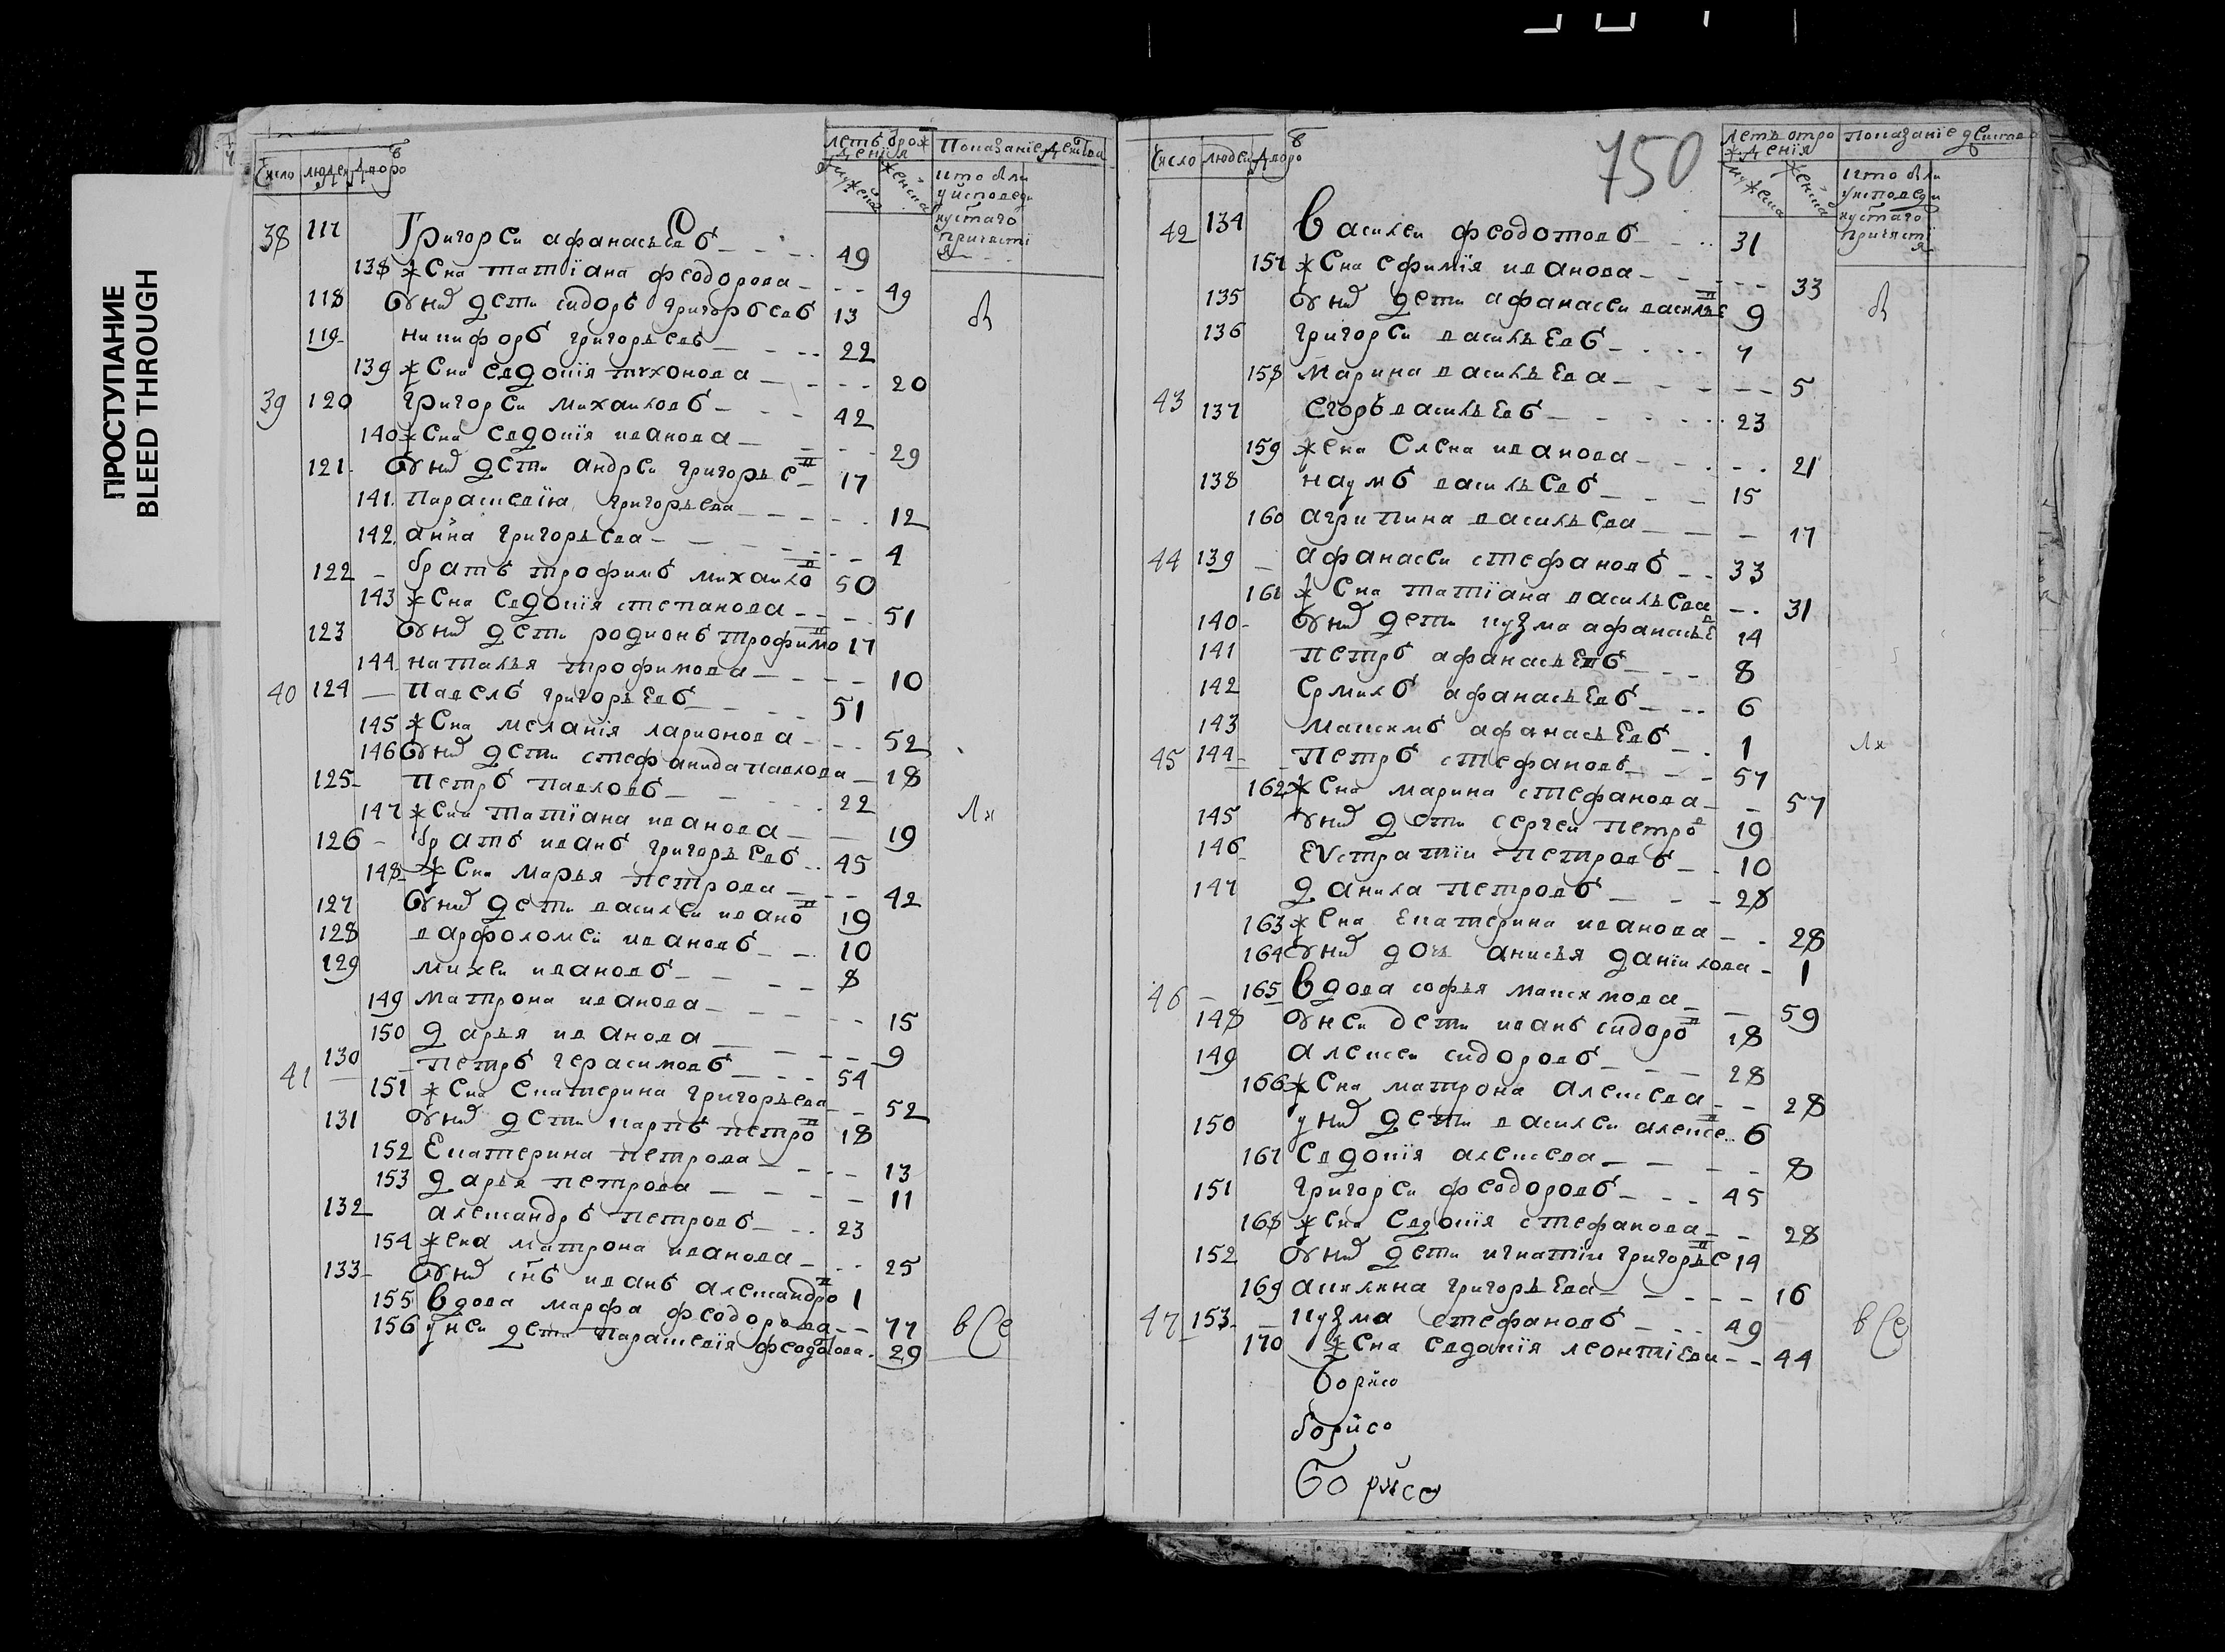 ПРОСТУПАНИЕ
BLEED THROUGH
Число людей дворовъ
летъ от рождения
мужеска женска
Показание действа
кто был у исповеди и у стаго причастия
38 117 Григореи афанасьевъ 49
138 жена татиана феодорова 49
118 У них дети сидоръ григорьевъ 13
119 никифоръ григорьевъ 22
139 жена евдокия тихонова 20
39 120 григореи михаиловъ 42
140 жена евдокия иванова 29
121 У них дети андреи григорьев 17
141 параскевия григорьева 12
142 анна григорьева 4
122 братъ трофимъ михаилов 50
143 жена евдокия степанова 51
123 У них дети родионъ трофимов 17
144 наталья трофимова 10
40 124 павелъ григорьевъ 51
145 жена мелания ларионова 52
146 У них дети стефанида павлова 18
125 петръ павловъ 22
147 жена татиана иванова 19
126 братъ иванъ григорьевъ 45
148 жена марья петрова 42
127 У них дети василеи иванов 19
128 варфоломей ивановъ 10
129 михеи ивановъ 8
149 матрона иванова 15
150 дарья иванова 9
41 130 петръ герасимовъ 54
151 жена екатерина григорьева 52
131 У них дети карпъ петров 18
152 Екатерина петрова 13
153 дарья петрова 11
132 александръ петровъ 23
154 жена матрона иванова 25
133 У них снъ иванъ александров 1
155 вдова марфа феодорова 77
156 у неи дети параскевия федотова 29
750
Число людей дворовъ
летъ от рождения
мужеска женска
Показание действа
кто был у исповеди и у стаго причастия
42 134 Василеи феодотовъ 31
157 жена ефимия иванова 33
135 У них дети афанасеи василье 9
136 григореи васильевъ 7
158 марина васильева 5
43 137 егоръ васильевъ 23
159 жена елена иванова 21
138 наумъ васильевъ 15
160 агрипина васильева 17
44 139 афанасеи стефановъ 33
161 жена татиана васильева 31
140 У них дети кузма афанасье 14
141 петръ афанасьевъ 8
142 ермилъ афанасьевъ 6
143 максимъ афанасьевъ 1
45 144 петръ стефановъ 57
162 жена марина стефанова 57
145 У них дети сергеи петров 19
146 Еvстратии петровъ 10
147 данила петровъ 28
163 жена Екатерина иванова 28
164 У них дочь анисья данилова 1
46 165 вдова софья максимова 59
148 У неи дети иванъ сидоров 18
149 алексеи сидоровъ 28
166 жена матрона алексеева 28
150 у них дети василеи алексе 6
167 евдокия алексеева 8
151 григореи феодоровъ 45
168 жена евдокия стефанова 28
152 У них дети игнатии григорье 14
169 акилина григорьева 16
47 153 кузма стефановъ 49
170 жена евдокия леонтиева 44
все
все